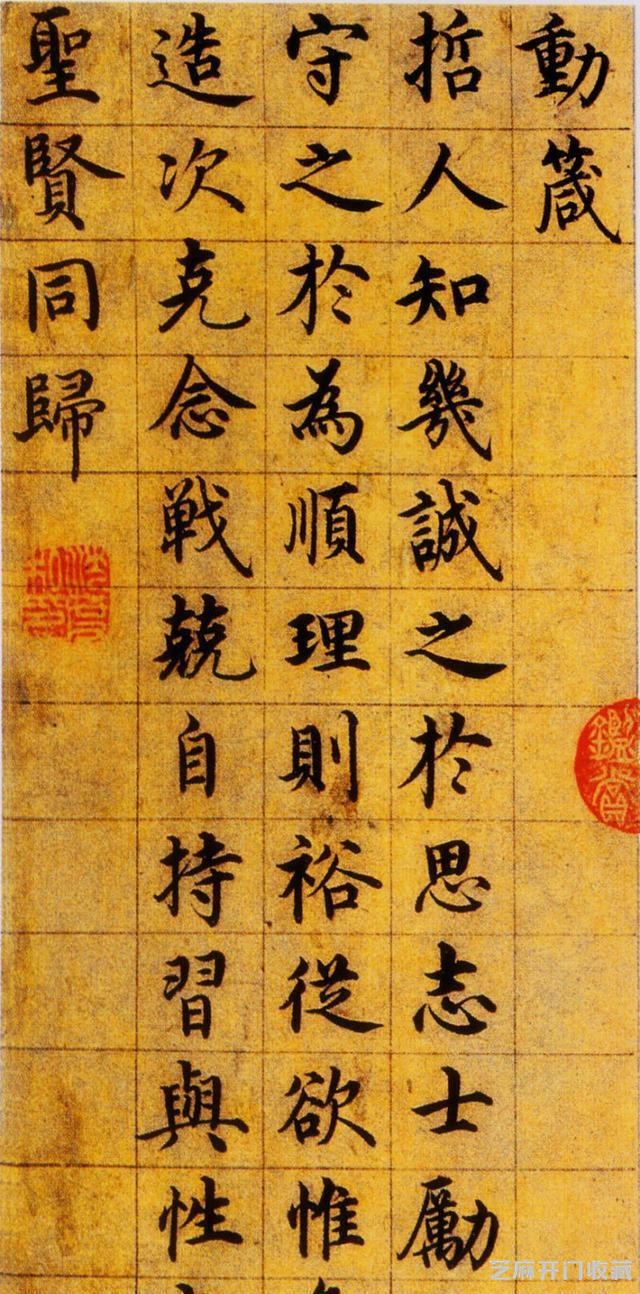 動箴
哲人知幾誠之於思志士勵
守之於為順理則裕從欲惟
造次克念戦兢自持習與性
聖賢同歸
鑑賞
芝麻开门收藏